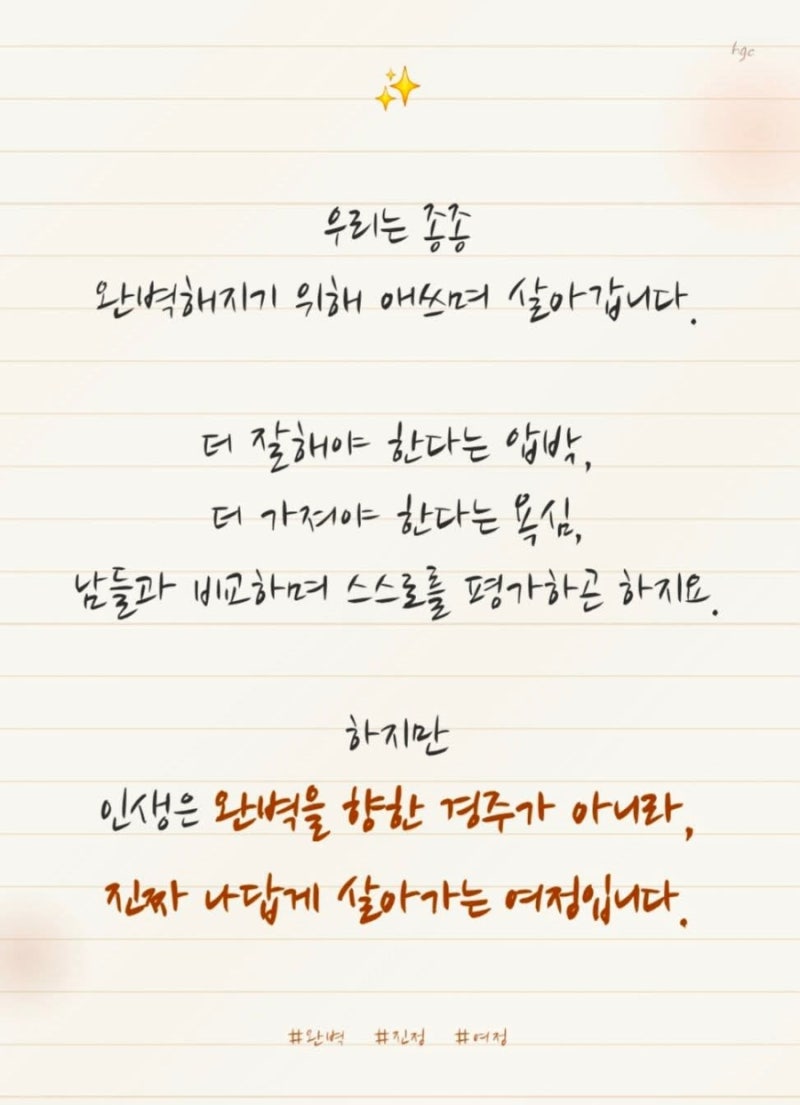 hgc
✨
우리는 종종
완벽해지기 위해 애쓰며 살아갑니다.
더 잘해야 한다는 압박,
더 가져야 한다는 욕심,
남들과 비교하며 스스로를 평가하곤 하지요.
하지만
인생은 완벽을 향한 경주가 아니라,
진짜 나답게 살아가는 여정입니다.
#완벽 #진정 #여정